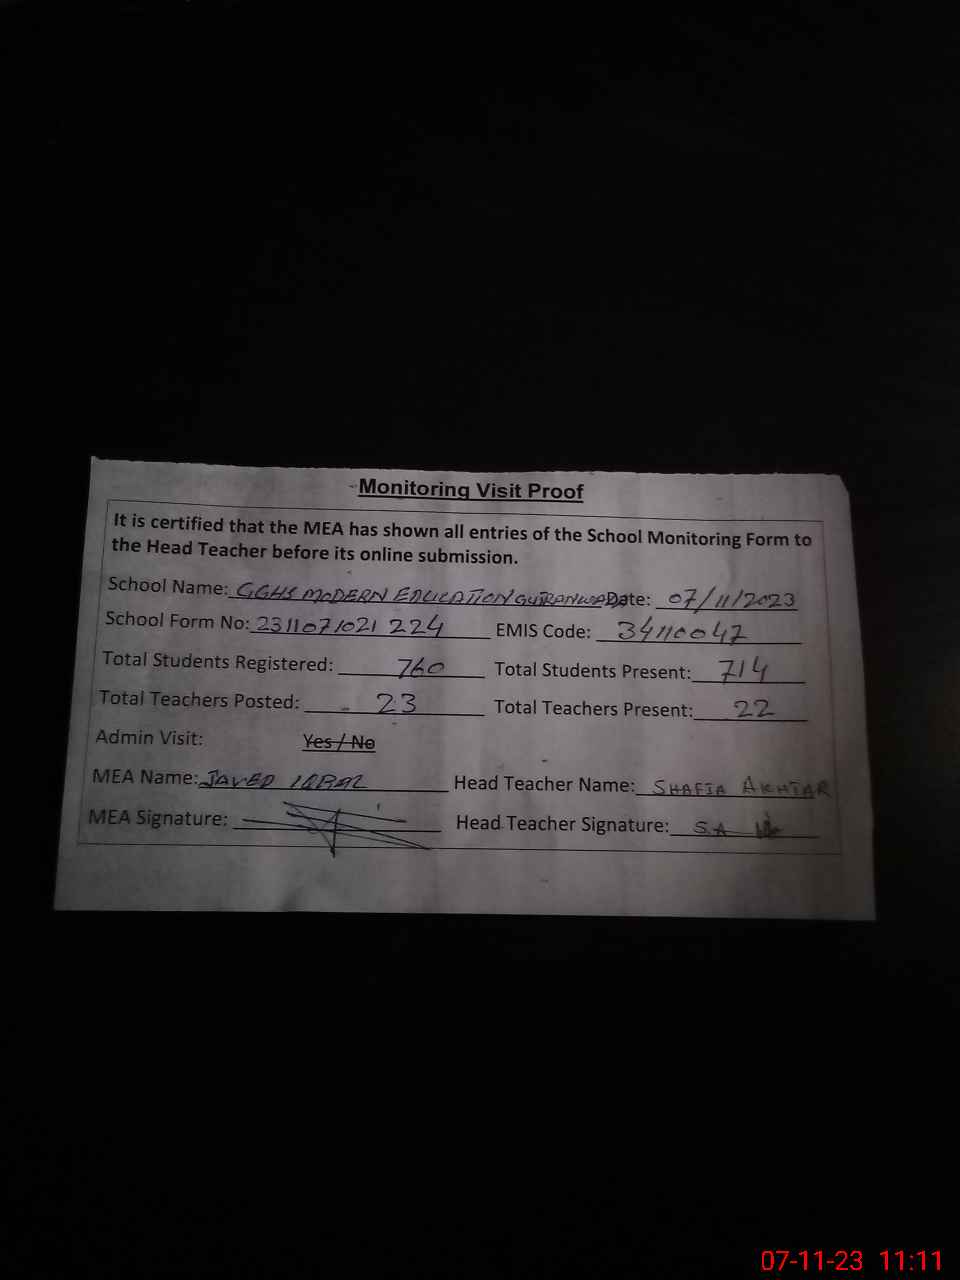 Monitoring Visit Proof
It is certified that the MEA has shown all entries of the School Monitoring Form to
the Head Teacher before its online submission.
School Name: GGHS MODERN EDUCATION GUJRANWALA Date: 07/11/2023
School Form No: 2311071021 224 EMIS Code: 34110047
Total Students Registered: 760 Total Students Present: 714
Total Teachers Posted: 23 Total Teachers Present: 22
Admin Visit: Yes / No
MEA Name: JAVED IQBAL Head Teacher Name: SHAFIA AKHTAR
MEA Signature: Head Teacher Signature: S.A
07-11-23 11:11